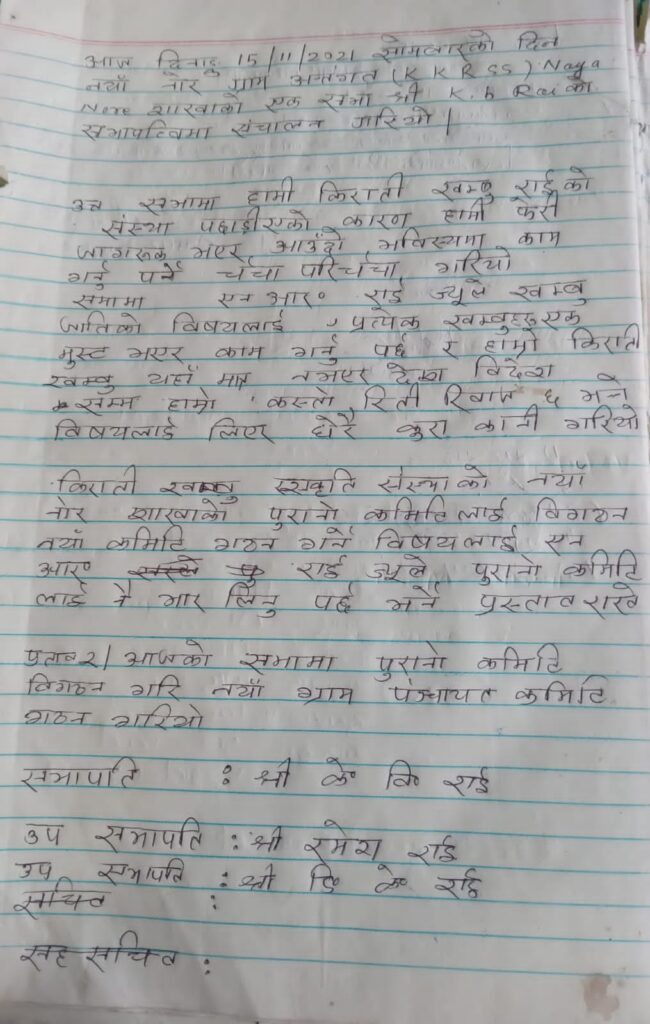 आज दिनाङ्क 15/11/2021 सोमबारको दिन
नयाँ नोर ग्राम अर्न्तगत (K K R SS) Naya
Nore शाखाको एक सभा श्री K.b Rai को
सभापत्विमा संचालन गरियो |
उक्त सभामा हामी किराती खम्बु राईको
संस्था पछाडीएको कारण हामी फेरी
जागरुक भएर आउँदो भविस्यमा काम
गर्नु पर्ने चर्चा परिर्चचा गरियो
सभामा एन आर॰ राई ज्यूले खम्बु
जातिको विषयलाई , प्रत्येक खम्बुहरु एक
मुस्ट भएर काम गर्नु पर्छ र हाम्रो किराती
खम्बु यहाँ मात्र नभएर देश विदेश
सम्म हाम्रो कस्तो रिती रिवाज छ भन्ने
विषयलाई लिएर धेरै कुरा कानी गरियो
किराती खम्बु संस्कृति संस्थाको नयाँ
नोर शाखाको पुरानो कमिटिलाई विगठन
नयाँ कमिटि गठन गर्ने विषयलाई एन
आर॰ राई ज्यूले पुरानो कमिटि
लाई नै भार लिनु पर्छ भन्ने प्रस्ताव राखे
प्रताव २| आजको सभामा पुरानो कमिटि
विगठन गरि नयाँ ग्राम पंञ्चायत कमिटि
गठन गरियो
सभापति : श्री के॰ वि॰ राई
उप सभापति : श्री रमेश राई
उप सभापति : श्री डि॰ के॰ राई
सचिव :
सह सचिव :